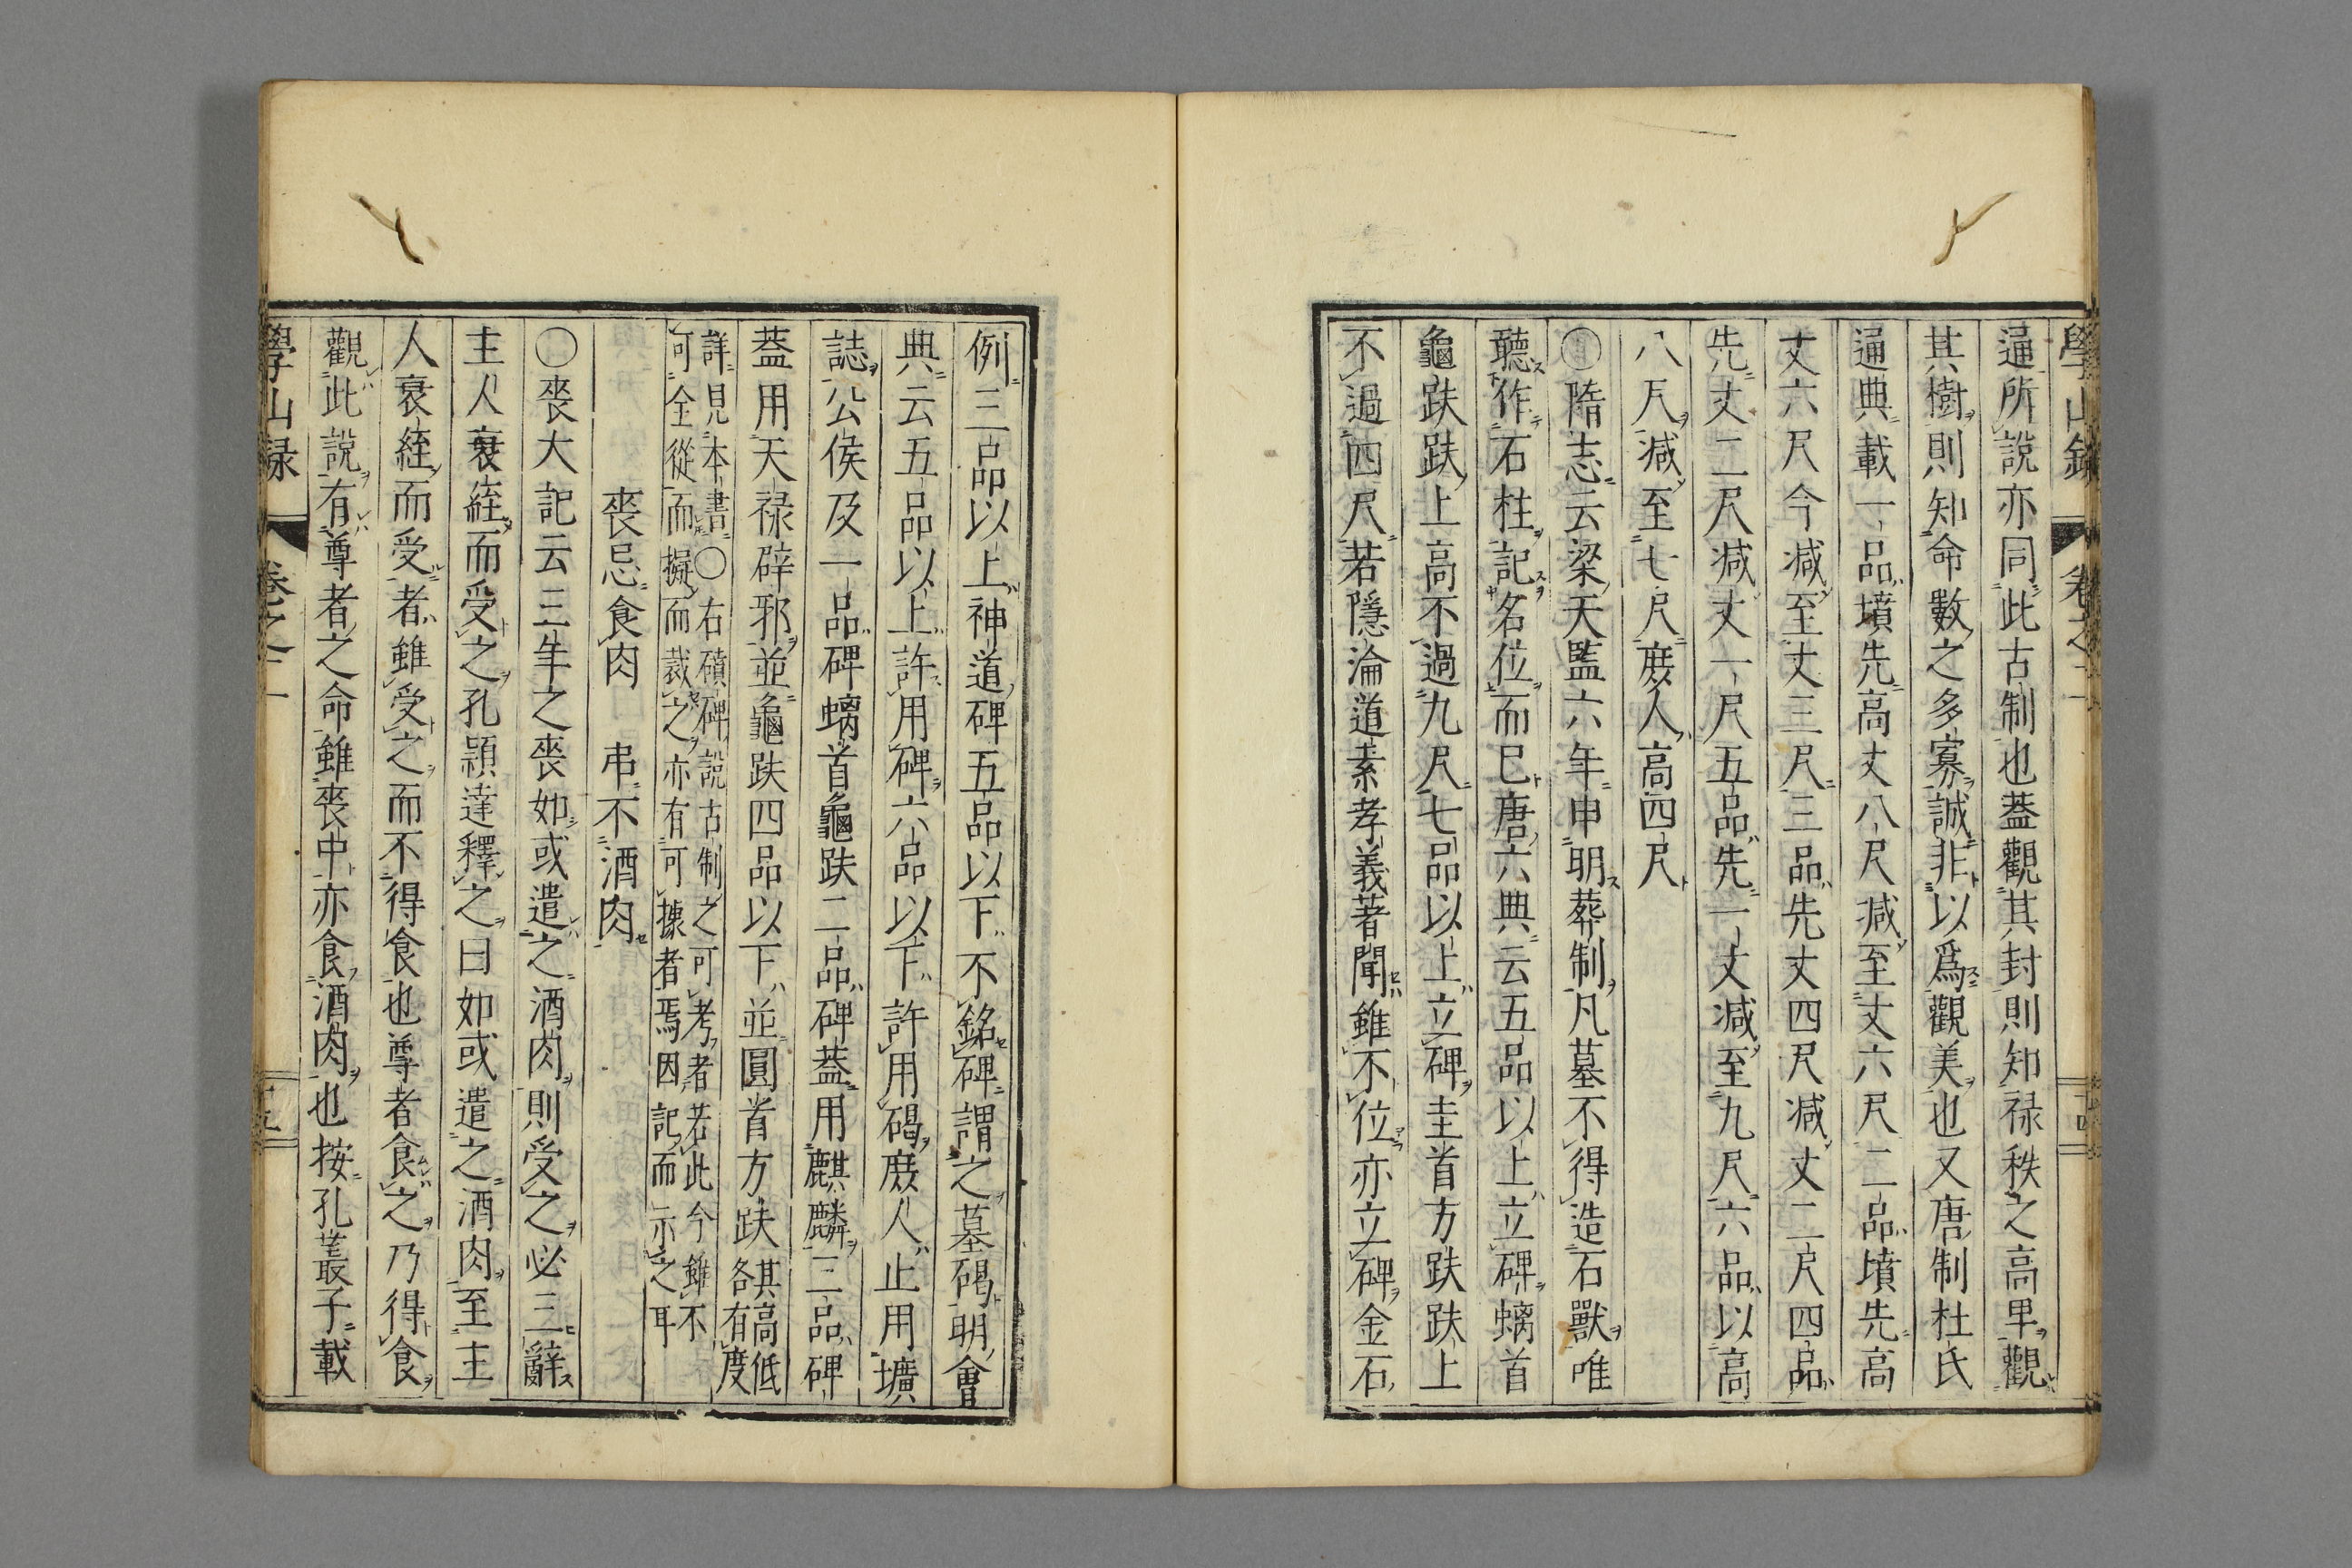 學山錄 卷之二 十四
通所說亦同此古制也葢觀其封則知祿秩之高卑觀
其樹則知命數之多寡誠非以爲觀美也又唐制杜氏
通典載一品墳先高丈八尺减至丈六尺二品墳先高
丈六尺今减至丈三尺三品先丈四尺减丈二尺四品
先丈二尺减丈一尺五品先一丈减至九尺六品以高
八尺减至七尺庻人高四尺
〇隋志云梁天監六年申明葬制凡墓不得造石獸唯
聽作石柱記名位而已唐六典云五品以上立碑螭首
龜趺趺上高不過九尺七品以上立碑圭首方趺趺上
不過四尺若隱淪道素孝義著聞雖不位亦立碑金石
例三品以上神道碑五品以下不銘碑謂之墓碣明會
典云五品以上許用碑六品以下許用碣庻人止用壙
誌公侯及一品碑螭首龜趺二品碑葢用麒麟三品碑
葢用天禄辟邪並龜趺四品以下並圓首方趺其高低各有度
詳見本書〇右碩碑說古制之可考者若此今雖不
可全從而擬而裁之亦有可據者焉因記而示之耳
喪忌食肉 弔不酒肉
〇喪大記云三年之喪如或遣之酒肉則受之必三辭
主人衰絰而受之孔頴達釋之曰如或遣之酒肉至主
人衰絰而受者雖受之而不得食也尊者食之乃得食
觀此說有尊者之命雖喪中亦食酒肉也按孔叢子載
學山録 卷之二 十五